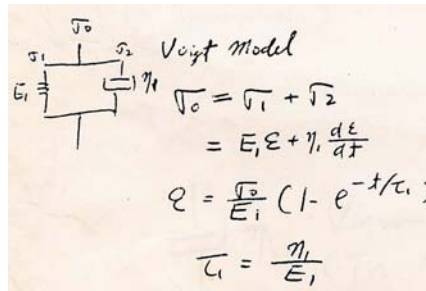 σ₀
σ₁ σ₂
E₁ η₁
Voigt Model
σ₀ = σ₁ + σ₂
= E₁ε + η₁ dε/dt
ε = σ₀/E₁ (1 - e^{-t/τ₁})
τ₁ = η₁/E₁